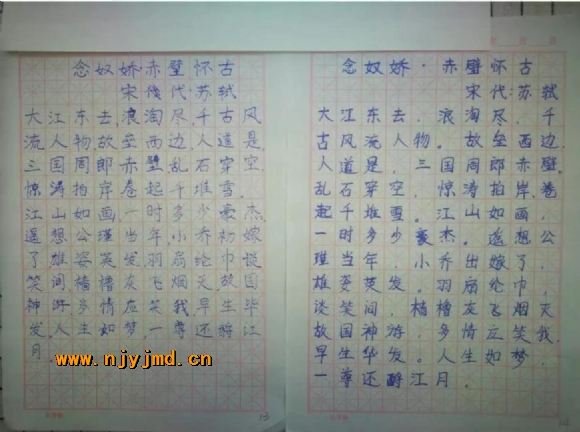 念奴娇·赤壁怀古
宋代:苏轼
大江东去,浪淘尽,千古风
流人物,故垒西边,人道是
三国周郎赤壁乱石穿空
惊涛拍岸卷起千堆雪.
江山如画,一时多少豪杰.
遥想公瑾当年,小乔初嫁
了雄姿英发羽扇纶巾谈
笑间樯橹灰飞烟灭,故国
神游多情应笑我,早生
发.人生如梦一尊还酹江
月.
念奴娇·赤壁怀古
宋代:苏轼
大江东去,浪淘尽,千
古风流人物。故垒西边,
人道是,三国周郎赤壁.
乱石穿空,惊涛拍岸,卷
起千堆雪。江山如画,
一时多少豪杰。遥想公
瑾当年,小乔出嫁了,
雄姿英发。羽扇纶巾,
谈笑间,樯橹灰飞烟灭
故国神游,多情应笑我.
早生华发。人生如梦,
一尊还酹江月。
www.njyjmd.cn